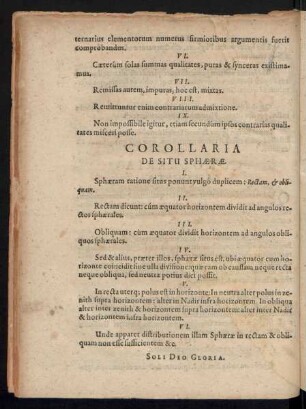 ternarius elementorum numerus firmioribus argumentis fuerit
comprobandus.
VI.
Cæterùm solas summas qualitates, puras & synceras existima-
mus.
VII.
Remissas autem, impuras, hoc est, mixtas.
VIII.
Remittuntur enim contrariorum admixtione.
IX.
Non impossibile igitur, etiam secundùm ipsos contrarias quali-
tates misceri posse.
COROLLARIA
DE SITU SPHÆRÆ.
I.
Sphæram ratione situs ponunt vulgò duplicem: Rectam, & obli-
quam.
II.
Rectam dicunt: cùm æquator horizontem dividit ad angulos re-
ctos sphærales.
III.
Obliquam: cùm æquator dividit horizontem ad angulos obli-
quos sphærales.
IV.
Sed & alius, præter illos, sphæræ situs est, ubi æquator cum ho-
rizonte coincidit: hoc situ divisio: quàm ob causam neque recta
neque obliqua, sed neutra potius dici possit.
V.
In recta uterq; polus est in horizonte. In neutra alter polus in ze-
nith supra horizontem: alter in Nadir infra horizontem. In obliqua
alter inter zenith & horizontem supra horizontem: alter inter Nadir
& horizontem infra horizontem.
VI.
Unde apparet distributionem illam Sphæræ in rectam & obli-
quam non esse sufficientem &c.
SOLI DEO GLORIA.